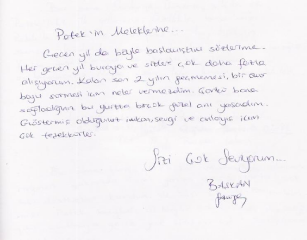 Petek'in Meleklerine...
Geçen yıl da böyle başlamıştım sözlerime.
Her geçen yıl buraya ve sizlere çok daha fazla
alışıyorum. Kalan son 2 yılın geçmemesi, bir ömür
boyu sürmesi için neler vermezdim. Çünkü bana
sağladığınız bu yurtta birçok güzel anı yaşadım.
Göstermiş olduğunuz imkan, sevgi ve anlayış için
çok teşekkürler.
Sizi Çok Seviyorum...